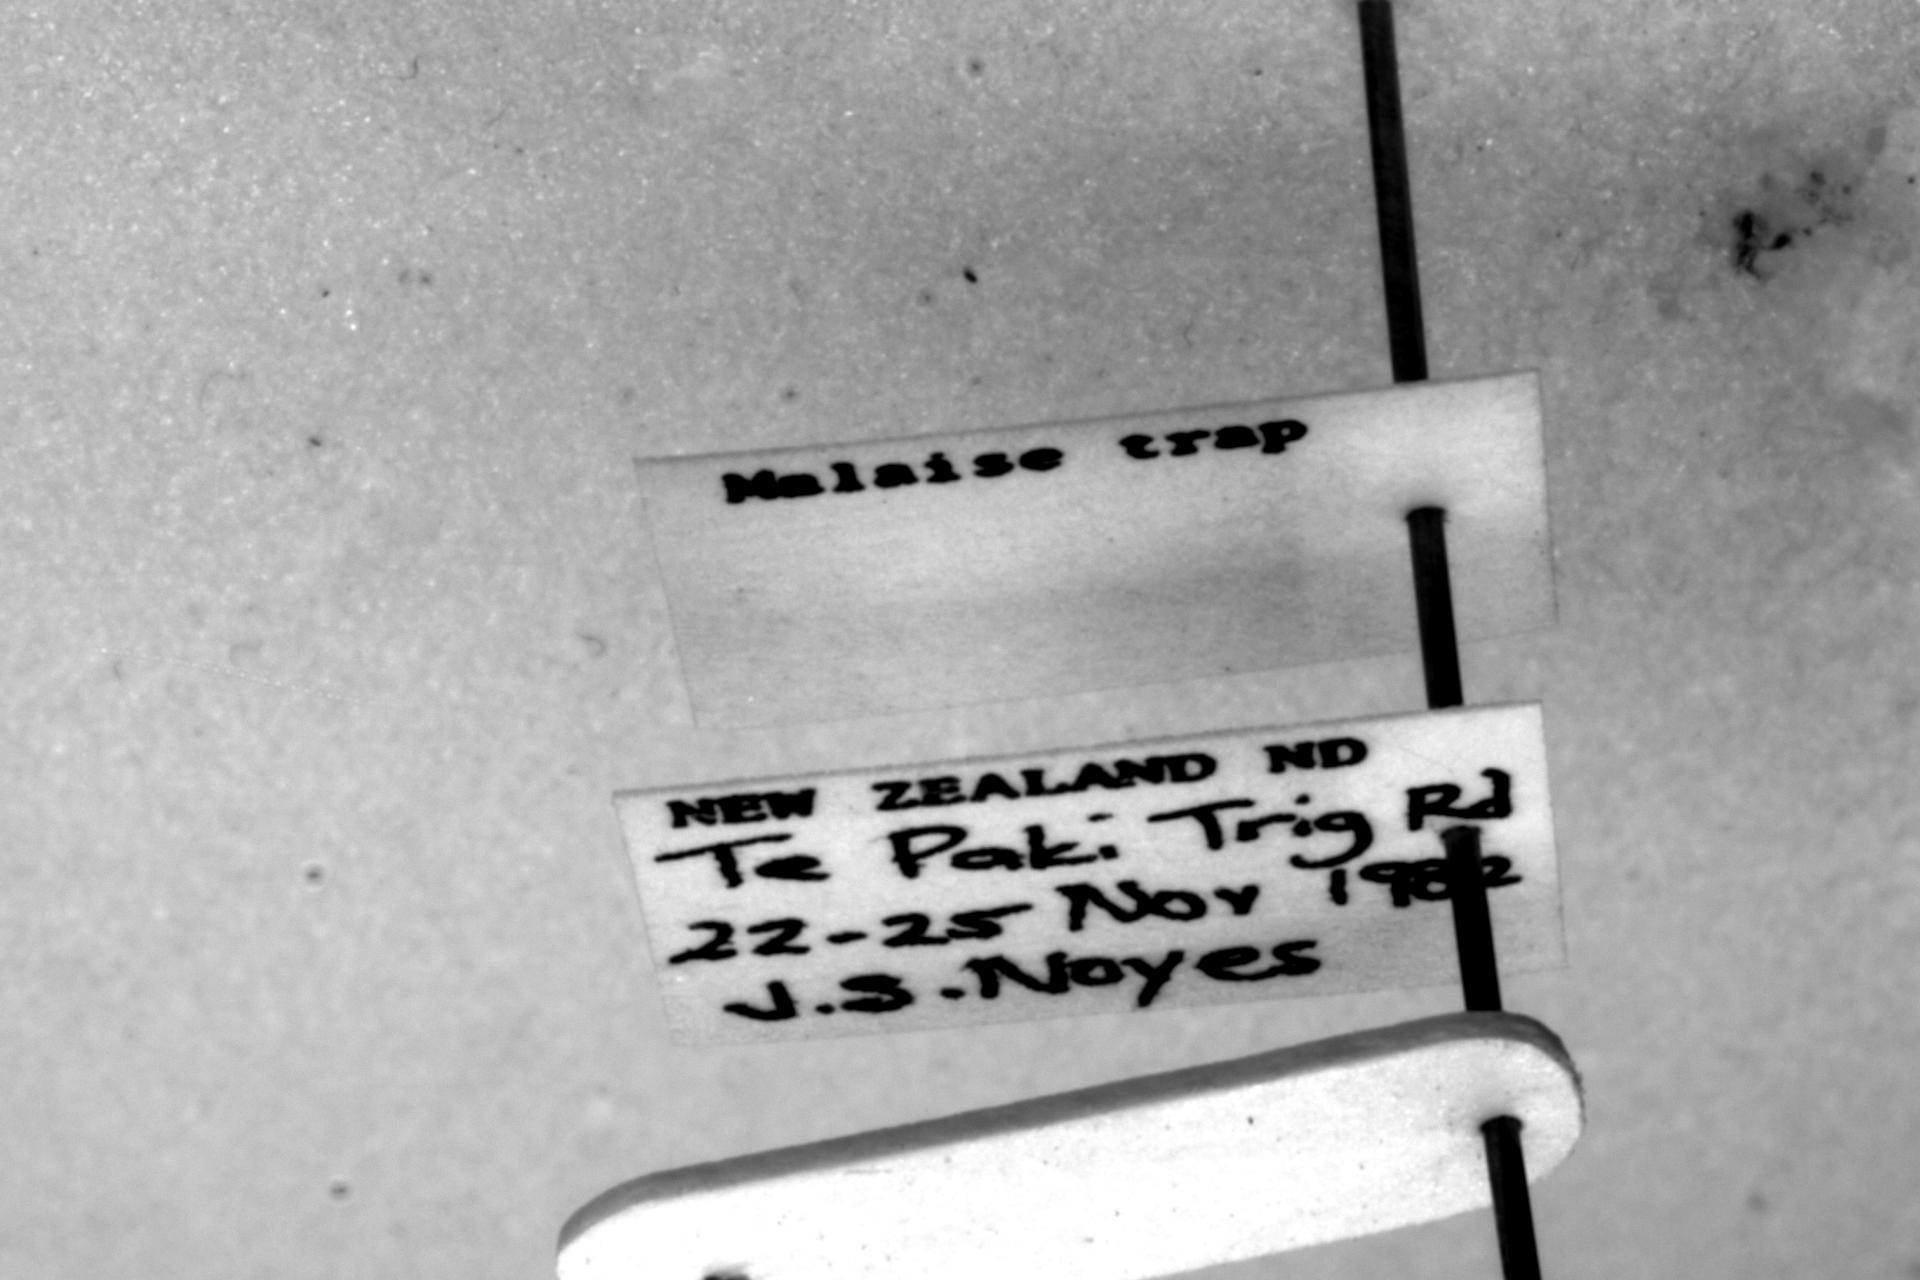 Malaise trap
NEW ZEALAND ND
Te Paki Trig Rd
22-25 Nov 1982
J.S.Noyes